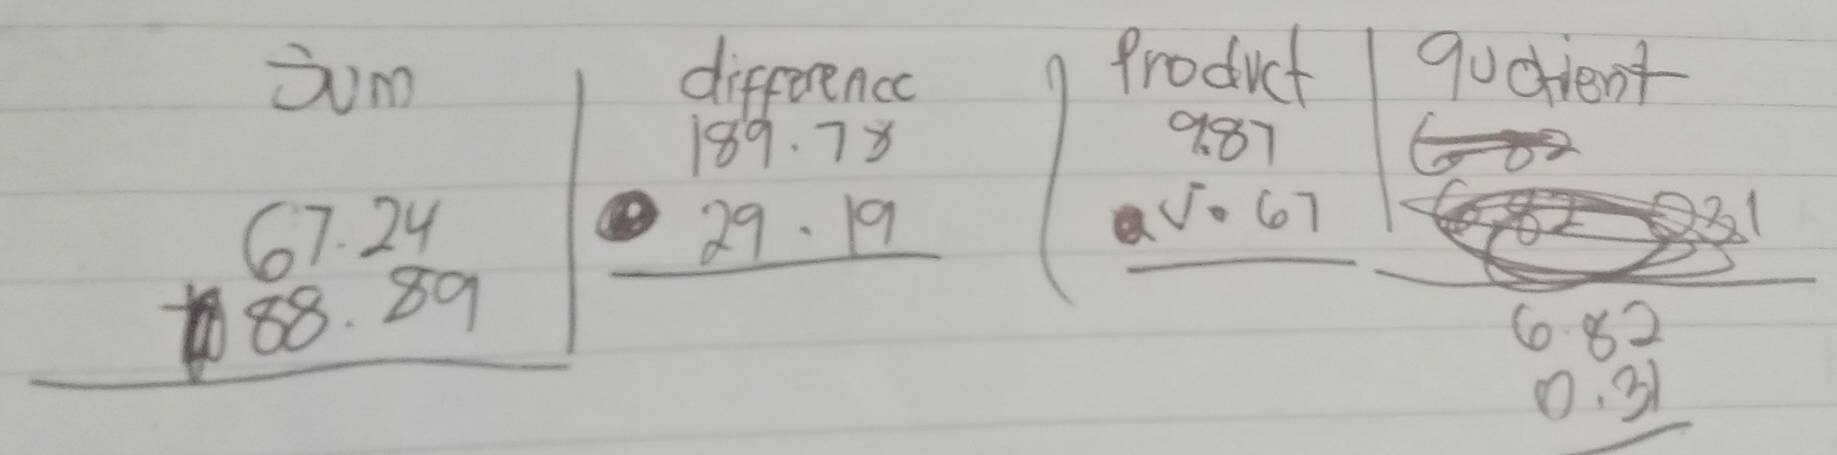 Sum
67.24
88.89
difference
189.78
29.19
Product
9.87
.67
quotient
6.82
0.31